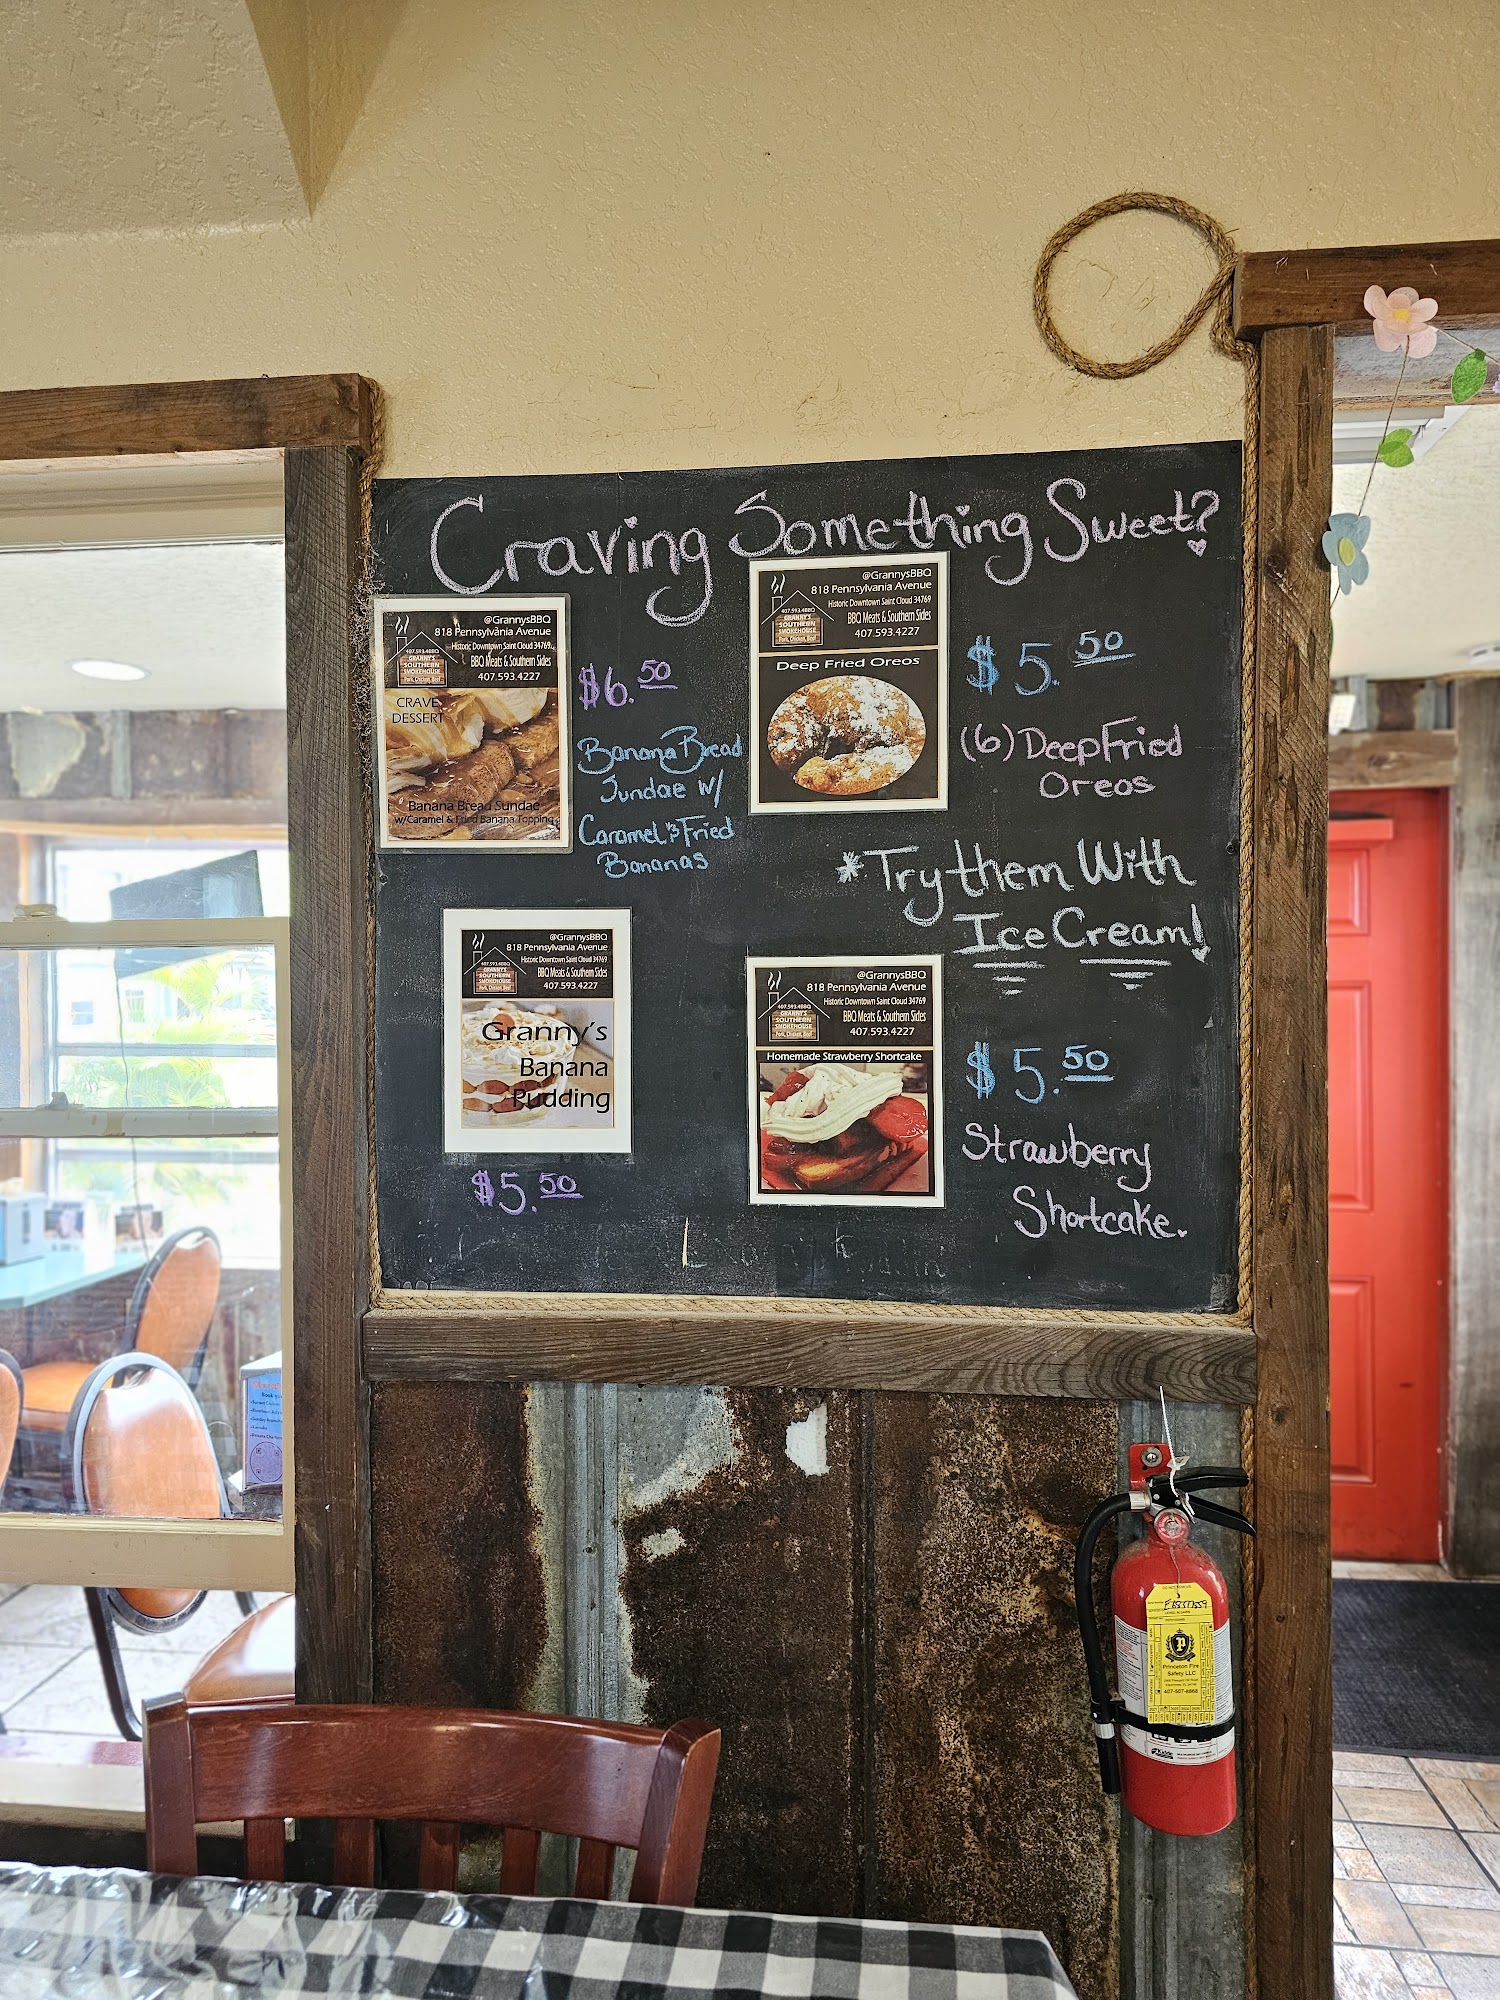 Craving Something Sweet?
@GrannysBBQ
818 Pennsylvania Avenue
Historic Downtown Saint Cloud 34769
BBQ Meats & Southern Sides
407.593.4227
407.593.4BBQ
GRANNY'S
SOUTHERN
SMOKEHOUSE
Pork, Chicken, Beef
CRAVE
DESSERT
Banana Bread Sundae
w/Caramel & Fried Banana Topping
$6.50
Banana Bread
Sundae w/
Caramel & Fried
Bananas
@GrannysBBQ
818 Pennsylvania Avenue
Historic Downtown Saint Cloud 34769
BBQ Meats & Southern Sides
407.593.4227
407.593.4BBQ
GRANNY'S
SOUTHERN
SMOKEHOUSE
Pork, Chicken, Beef
Deep Fried Oreos
$5.50
(6) Deep Fried
Oreos
*Try them With
Ice Cream!
@GrannysBBQ
818 Pennsylvania Avenue
Historic Downtown Saint Cloud 34769
BBQ Meats & Southern Sides
407.593.4227
407.593.4BBQ
GRANNY'S
SOUTHERN
SMOKEHOUSE
Pork, Chicken, Beef
Granny's
Banana
Pudding
$5.50
@GrannysBBQ
818 Pennsylvania Avenue
Historic Downtown Saint Cloud 34769
BBQ Meats & Southern Sides
407.593.4227
407.593.4BBQ
GRANNY'S
SOUTHERN
SMOKEHOUSE
Pork, Chicken, Beef
Homemade Strawberry Shortcake
$5.50
Strawberry
Shortcake.
Princeton Fire
Safety LLC
407-507-8868